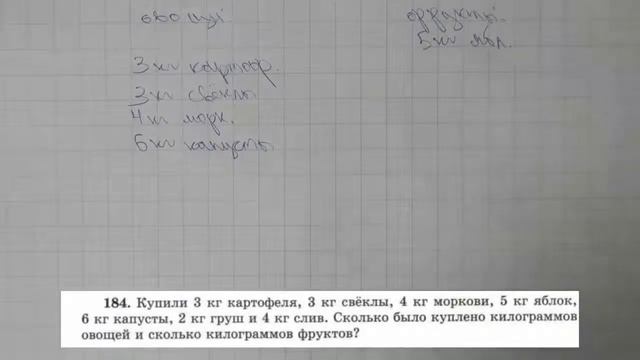 овощи
фрукты.
5 кг мол.
3 кг картоф.
3 кг свёклы
4 кг морк.
6 кг капусты
184. Купили 3 кг картофеля, 3 кг свёклы, 4 кг моркови, 5 кг яблок,
6 кг капусты, 2 кг груш и 4 кг слив. Сколько было куплено килограммов
овощей и сколько килограммов фруктов?